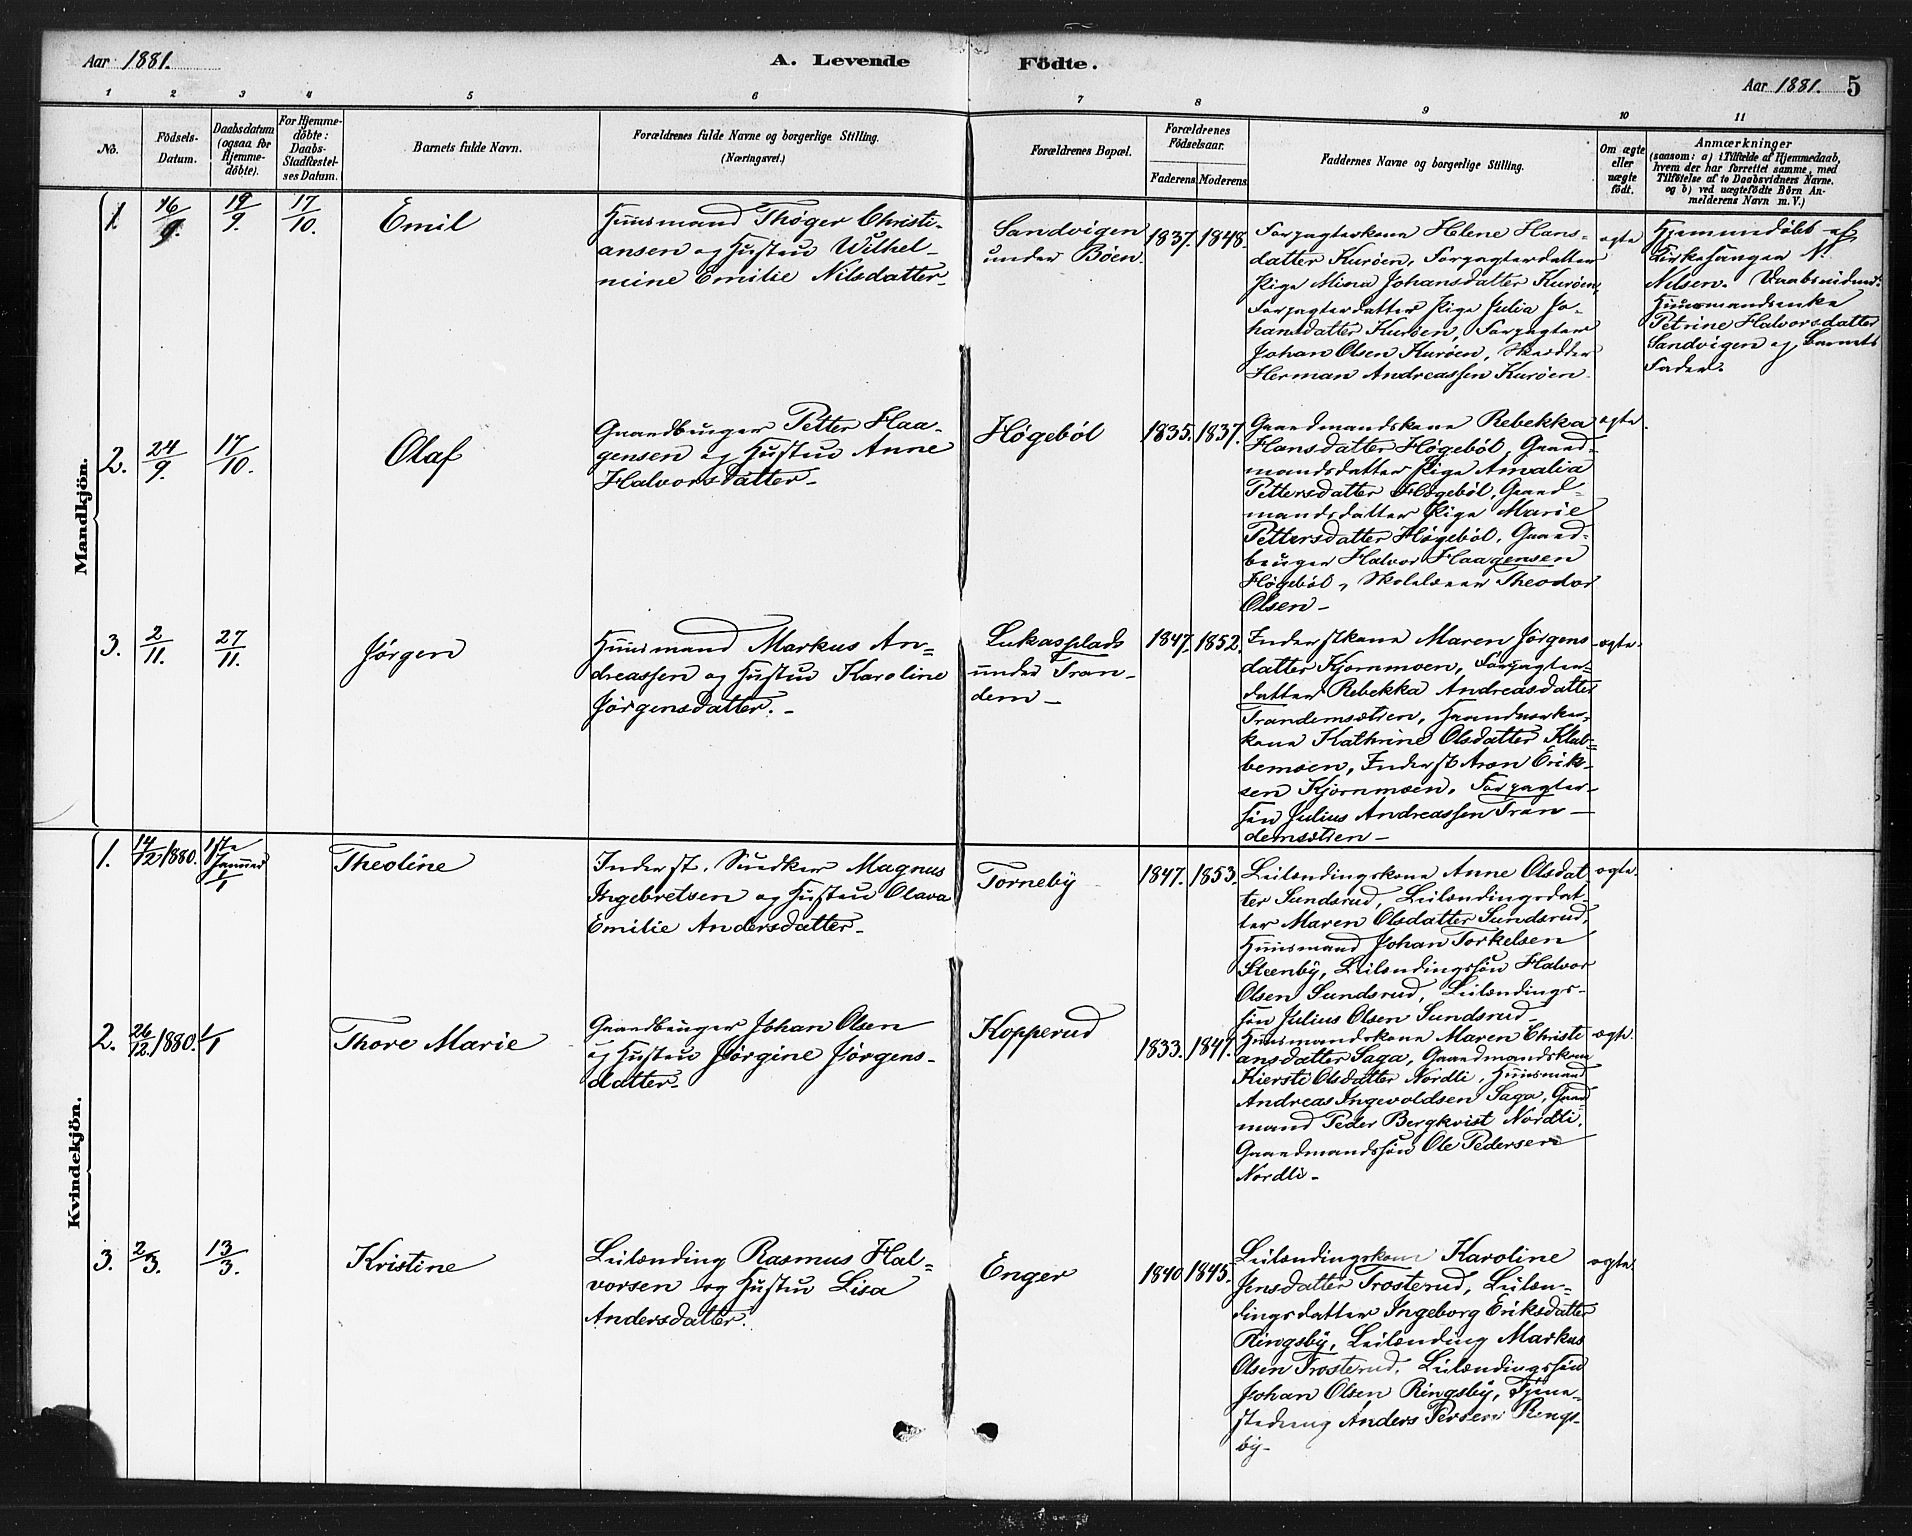 Aar 1881.
A. Levende Födte.
Aar 1881. 5
1 2 3 4 5 6 7 8 9 10 11
No.
Födsels-
Datum.
Daabsdatum
(ogsaa for
Hjemme-
döbte).
For Hjemme-
döbte:
Daabs-
Stadfæstel-
ses Datum.
Barnets fulde Navn.
Forældrenes fulde Navne og borgerlige Stilling.
(Næringsvei.)
Forældrenes Bopæl.
Forældrenes
Födselsaar.
Faderens Moderens
Faddernes Navne og borgerlige Stilling.
Om ægte
eller
uægte
födt.
Anmærkninger
(saasom: a) i Tilfælde af Hjemmedaab,
hvem der har forrettet samme, med
Tilföielse af to Daabsvidners Navne.
og b) ved uægtefödte Börn An-
melderens Navn m. V.)
Mandkjön.
1. 16/9. 19/9. 17/10. Emil
Huusmand Thøger Christi-
ansen og Hustru Wilhel-
mine Emilie Nilsdatter-
Sandvigen
under Böen.
1837. 1848.
Forpagterkone Helene Hans-
datter Kuröen, Forpagterdatter
Pige Mina Johansdatter Kuröen,
Forpagterdatter Pige Julia Jo-
hansdatter Kuröen, Forpagter
Johan Olsen Kuröen, Skrædder
Herman Andreassen Kuröen.
ægte
Hjemmedöbt af
Kirkesanger N.
Nilsen. Daabsvidner:
Huusmandsenke
Petrine Halvorsdatter
Sandvigen og Barnets
Fader.
2. 24/9. 17/10. Olaf
Gaardbruger Petter Haa-
gensen og Hustru Anne
Halvorsdatter-
Høgeböl
1835. 1837.
Gaardmandskone Rebekka
Hansdatter Høgeböl, Gaard-
mandsdatter Pige Amalia
Pettersdatter Høgeböl, Gaard-
mandsdatter Pige Marie
Pettersdatter Høgeböl, Gaard-
bruger Halvor Haagensen
Høgeböl, Skolelærer Theodor
Olsen-
ægte.
3. 2/11. 27/11. Jørgen
Huusmand Markus An-
dreassen og Hustru Karoline
Jørgensdatter.-
Lukasplads
under Tran-
dem-
1847. 1852.
Inderstkone Maren Jørgens
datter Kjornmoen, Forpagter-
datter Rebekka Andreasdatter
Trandemsætien, Haandværker-
kone Kathrine Olsdatter Klab-
bemoen, Inderst Aron Erik-
sen Kjornmoen, Forpagter-
søn Julius Andreassen Tran-
demsætien-
ægte.
Kvindekjön.
1. 14/12 1880. 1ste
Januar
1/1
Theoline
Inderst. Snedker Magnus
Ingebretsen og Hustru Olava
Emilie Andersdatter-
Torneby
1847. 1853.
Leilændingskone Anne Olsdat-
ter Sundsrud, Leilændingsdat-
ter Maren Olsdatter Sundsrud,
Huusmand Johan Torkelsen
Steenby, Leilændingssön Halvor
Olsen Sundsrud, Leilændings-
sön Julius Olsen Sundsrud-
ægte.
2. 26/12. 1880. 1/1
Thore Marie
Gaardbruger Johan Olsen
og Hustru Jørgine Jørgens-
datter-
Kopperud
1833. 1841.
Huusmandskone Maren Christi
ansdatter Saga, Gaardmandskone
Kiersti Olsdatter Nordli, Huusmand
Andreas Ingevoldsen Saga, Gaard
mand Peder Bergkvist Nordli,
Gaardmandssön Ole Pedersen
Nordli-
ægte.
3. 2/3. 13/3. Kristine
Leilænding Rasmus Hal-
vorsen og Hustru Lisa
Andersdatter.
Enger
1840 1845.
Leilændingskone Karoline
Jensdatter Trosterud, Leilæn-
dingsdatter Ingeborg Eriksdatter
Ringsby, Leilænding Markus
Olsen Trosterud, Leilændingssön
Johan Olsen Ringsby, Tjene-
stedreng Anders Persen Rings-
by-
ægte.